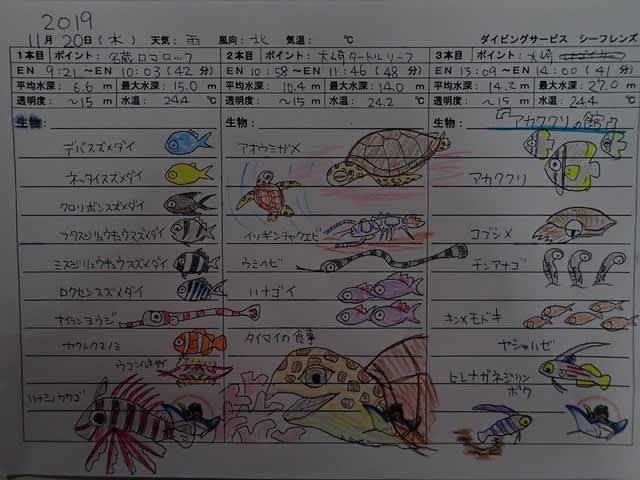 2019
11月20日(水) 天気: 雨 風向: 北 気温: ℃ ダイビングサービス シーフレンズ
1本目 ポイント: 名蔵ロコロック
EN 9:21 ～EN 10:03 (42 分)
平均水深: 6.6 m 最大水深: 15.0 m
透明度: ～15 m 水温: 24.4 ℃
生物:
デバスズメダイ
ネッタイスズメダイ
クロリボンスズメダイ
フタスジリュウキュウスズメダイ
ミスジリュウキュウスズメダイ
ロクセンスズメダイ
オイランヨウジ
カクレクマノミ
ウコンハネガイ
ハナミノカサゴ
2本目 ポイント: 大崎タートルリーフ
EN 10:58 ～EN 11:46 (48 分)
平均水深: 10.4 m 最大水深: 14.0 m
透明度: ～15 m 水温: 24.2 ℃
生物:
アオウミガメ
イソギンチャクエビ
ウミヘビ
ハナゴイ
タイマイの食事
3本目 ポイント: 大崎
EN 13:09 ～EN 14:00 (41 分)
平均水深: 14.2 m 最大水深: 27.0 m
透明度: ～15 m 水温: 24.4 ℃
生物: 『アカククリの館』
アカククリ
コブシメ
チンアナゴ
キンメモドキ
ヤシャハゼ
ヒレナガネジリン
ボウ